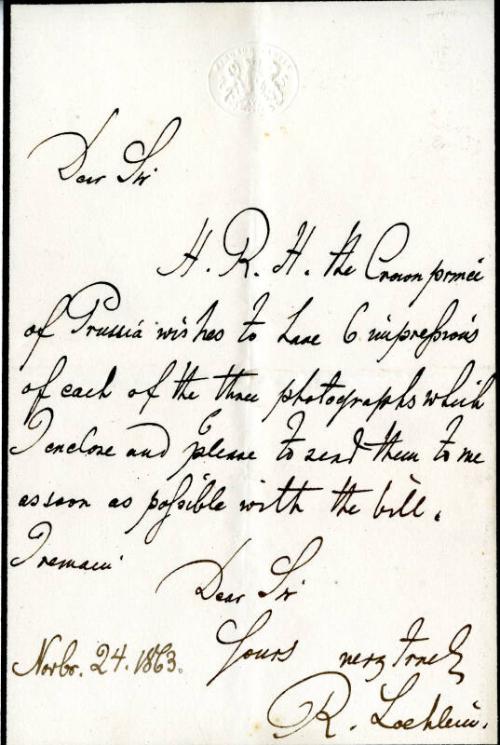 Dear Sir
H. R. H. the Crown prince
of Prussia wishes to have 6 impressions
of each of the three photographs which
I enclose and please to send them to me
as soon as possible with the bill.
I remain
Dear Sir
Yours very truely
Novbr. 24. 1863.
R.